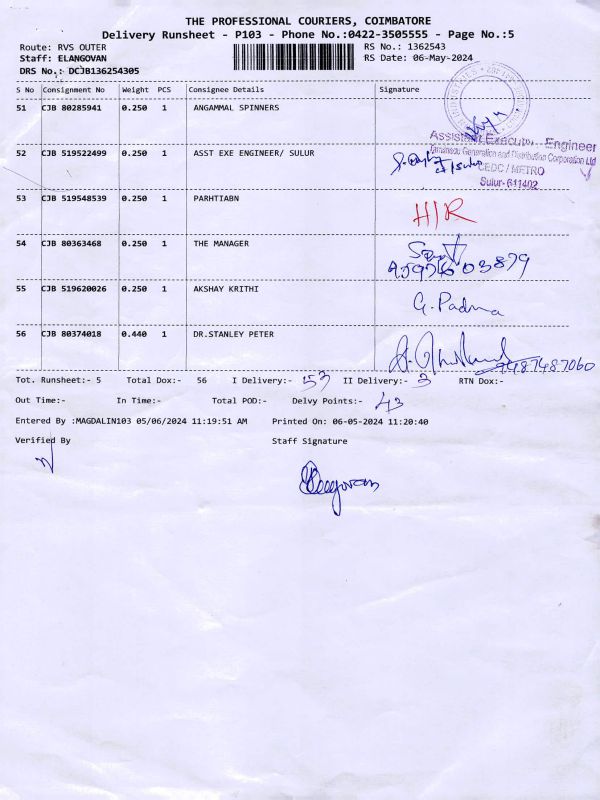 THE PROFESSIONAL COURIERS, COIMBATORE
Delivery Runsheet - P103 - Phone No.:0422-3505555 - Page No.:5
Route: RVS OUTER RS No.: 1362543
Staff: ELANGOVAN RS Date: 06-May-2024
DRS No.: DCJB136254305
S No Consignment No Weight PCS Consignee Details Signature
51 CJB 80285941 0.250 1 ANGAMMAL SPINNERS
Assistant Executive Engineer
52 CJB 519522499 0.250 1 ASST EXE ENGINEER/ SULUR
Tamilnadu Generation and Distribution Corporation Ltd
CEDC / METRO
Sulur-641402
53 CJB 519548539 0.250 1 PARHTIABN H/R
54 CJB 80363468 0.250 1 THE MANAGER
55 CJB 519620026 0.250 1 AKSHAY KRITHI G. Padma
56 CJB 80374018 0.440 1 DR.STANLEY PETER
9487487060
Tot. Runsheet:- 5 Total Dox:- 56 I Delivery:- 53 II Delivery:- 3 RTN Dox:-
Out Time:- In Time:- Total POD:- Delvy Points:- 43
Entered By :MAGDALIN103 05/06/2024 11:19:51 AM Printed On: 06-05-2024 11:20:40
Verified By Staff Signature